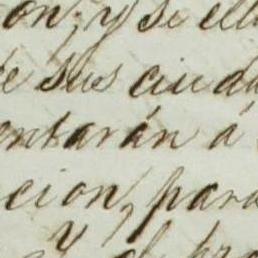 on, y si ell
e sus ciuda
entarán á
cion, para
y el pro